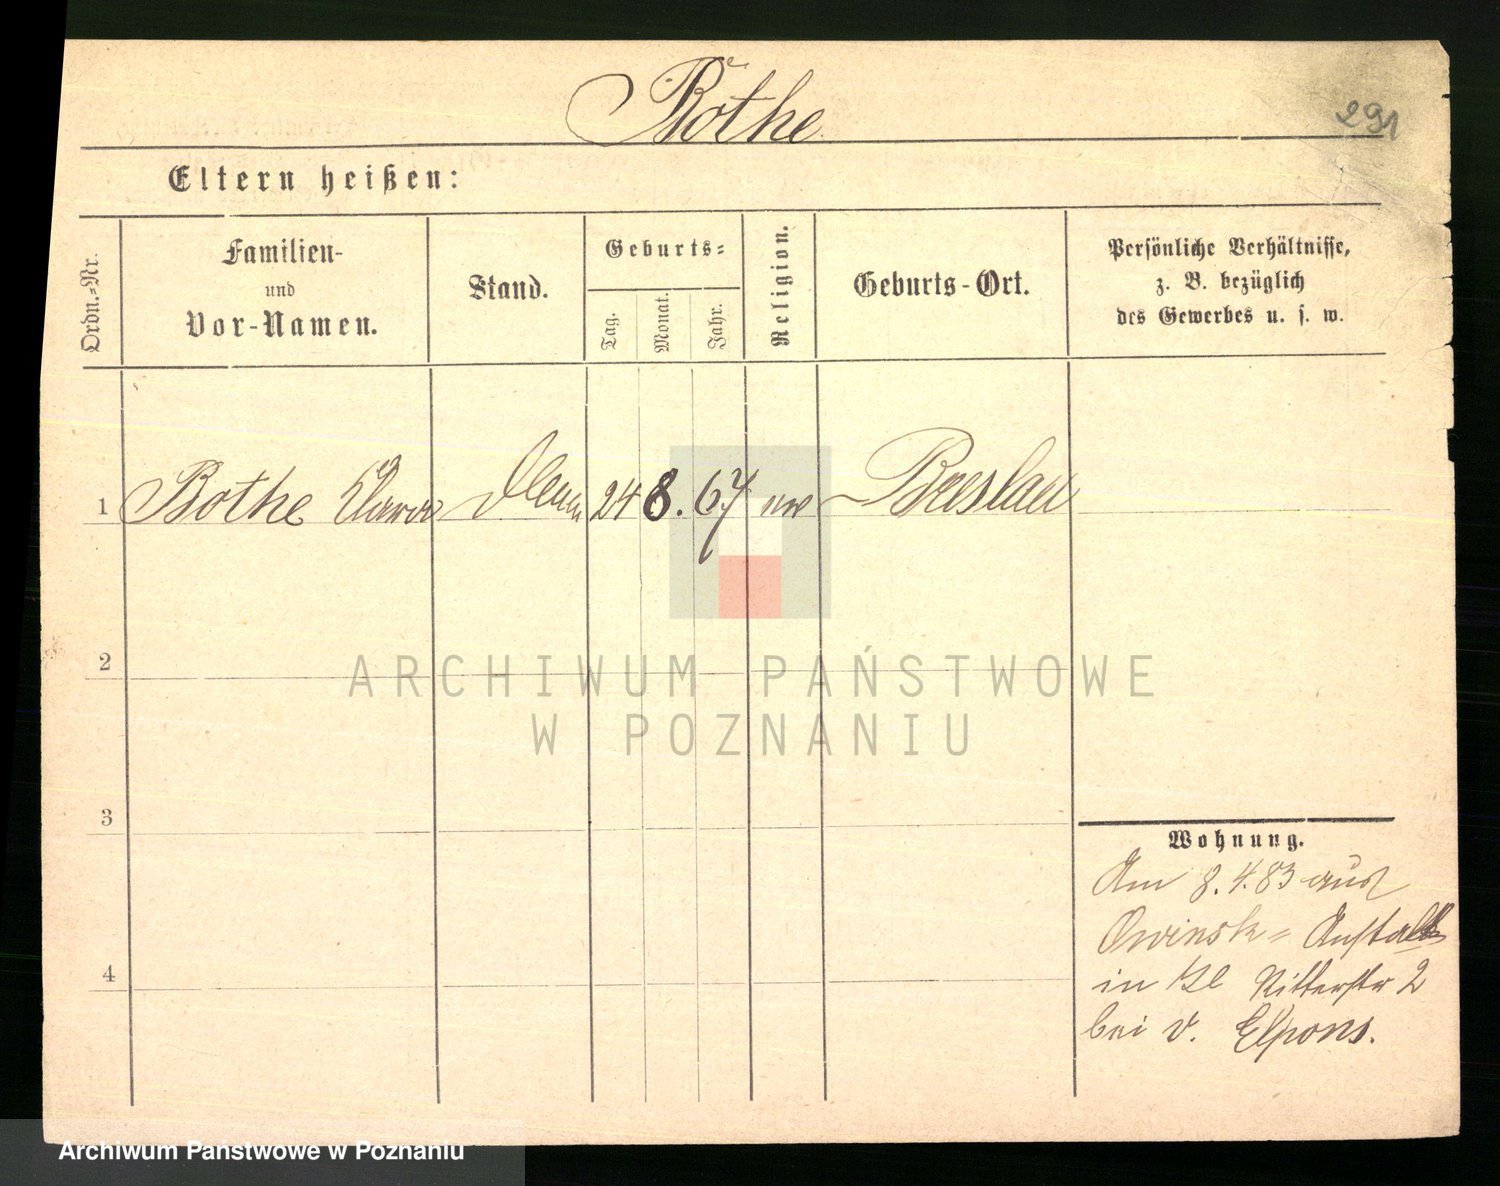 Bothe
291
Eltern heißen:
Ordn.-Nr.
Familien-
und
Vor-Namen.
Stand.
Geburts-
Tag.
Monat.
Jahr.
Religion.
Geburts-Ort.
Persönliche Verhältnisse,
z. B. bezüglich
des Gewerbes u. s. w.
1 Bothe Clara 24 8. 67 ev Breslau
2
3
4
Wohnung.
Am 8.4.83 aus
Owinsk= Anstalt
in Kl Ritterstr 2
bei v. Elpons.
ARCHIWUM PAŃSTWOWE
W POZNANIU
Archiwum Państwowe w Poznaniu